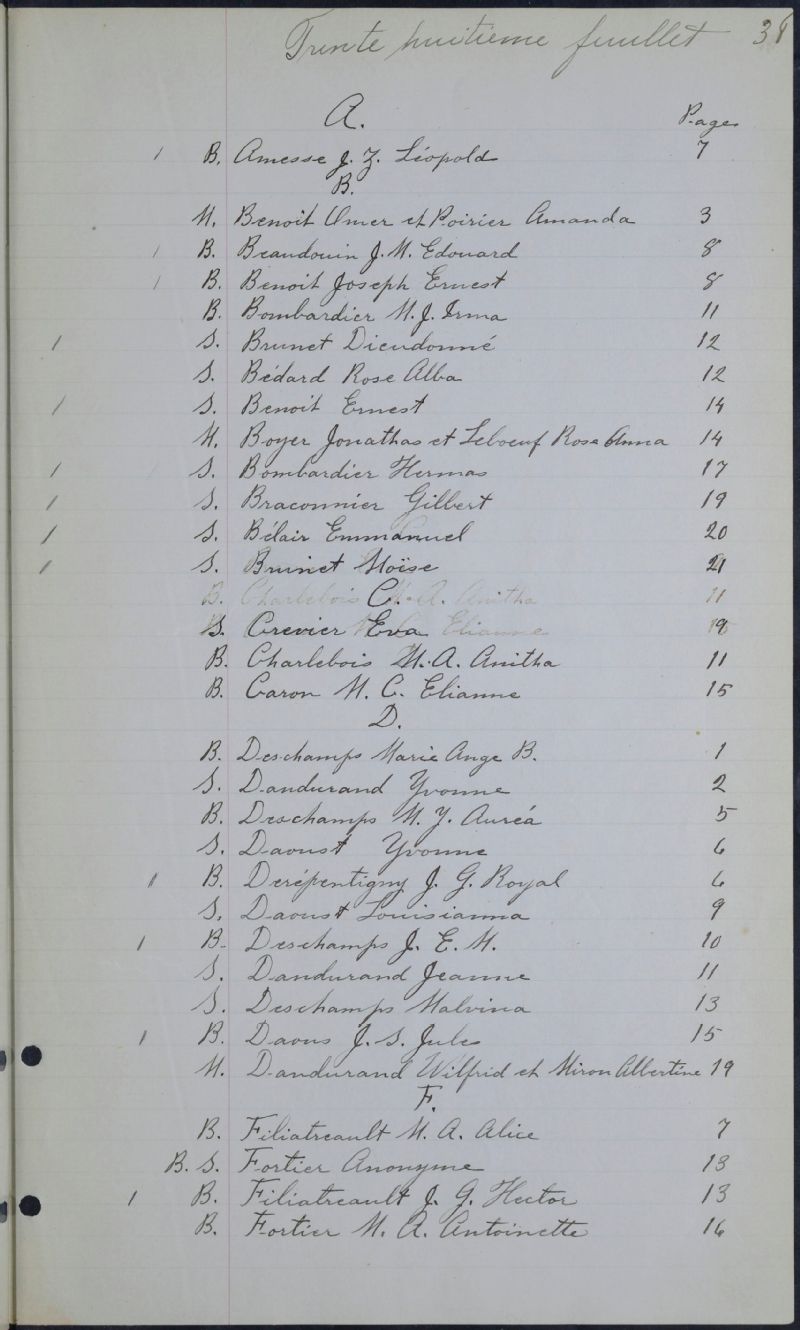 Trente huitieme feuillet 38
A. Pages
1 B. Amesse J. Z. Léopold 7
B.
M. Benoit Omer et Poirier Amanda 3
1 B. Beaudouin J. M. Edouard 8
1 B. Benoit Joseph Ernest 8
B. Bombardier M. J. Irma 11
1 S. Brunet Dieudonné 12
S. Bédard Rose Alba 12
1 S. Benoit Ernest 14
M. Boyer Jonathas et Leboeuf Rose Anna 14
1 S. Bombardier Hermas 17
1 S. Braconnier Gilbert 19
1 S. Bélair Emmanuel 20
1 S. Brunet Moïse 21
B. Charlebois M. A. Anitha 11
C.
S. Crevier Eva 19
Elianne
B. Charlebois M. A. Anitha 11
B. Caron M. C. Elianne 15
D.
B. Deschamps Marie Ange B. 1
S. Dandurand Yvonne 2
B. Deschamps M. Y. Auréa 5
S. Daoust Yvonne 6
1 B. Derépentigny J. G. Royal 6
S. Daoust Louisianna 9
1 B. Deschamps J. E. M. 10
S. Dandurand Jeanne 11
S. Deschamps Malvina 13
1 B. Daous J. S. Jules 15
M. Dandurand Wilfrid et Miron Albertine 19
F.
B. Filiatreault M. A. Alice 7
B. S. Fortier Anonyme 13
1 B. Filiatreault J. G. Hector 13
B. Fortier M. A. Antoinette 16